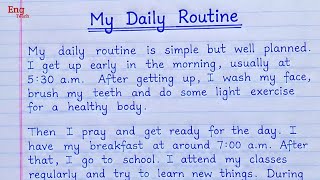 Eng
Teach
My Daily Routine
My daily routine is simple but well planned.
I get up early in the morning, usually at
5:30 a.m. After getting up, I wash my face,
brush my teeth and do some light exercise
for a healthy body.
Then I pray and get ready for the day. I
have my breakfast at around 7:00 a.m. After
that, I go to school. I attend my classes
regularly and try to learn new things. During